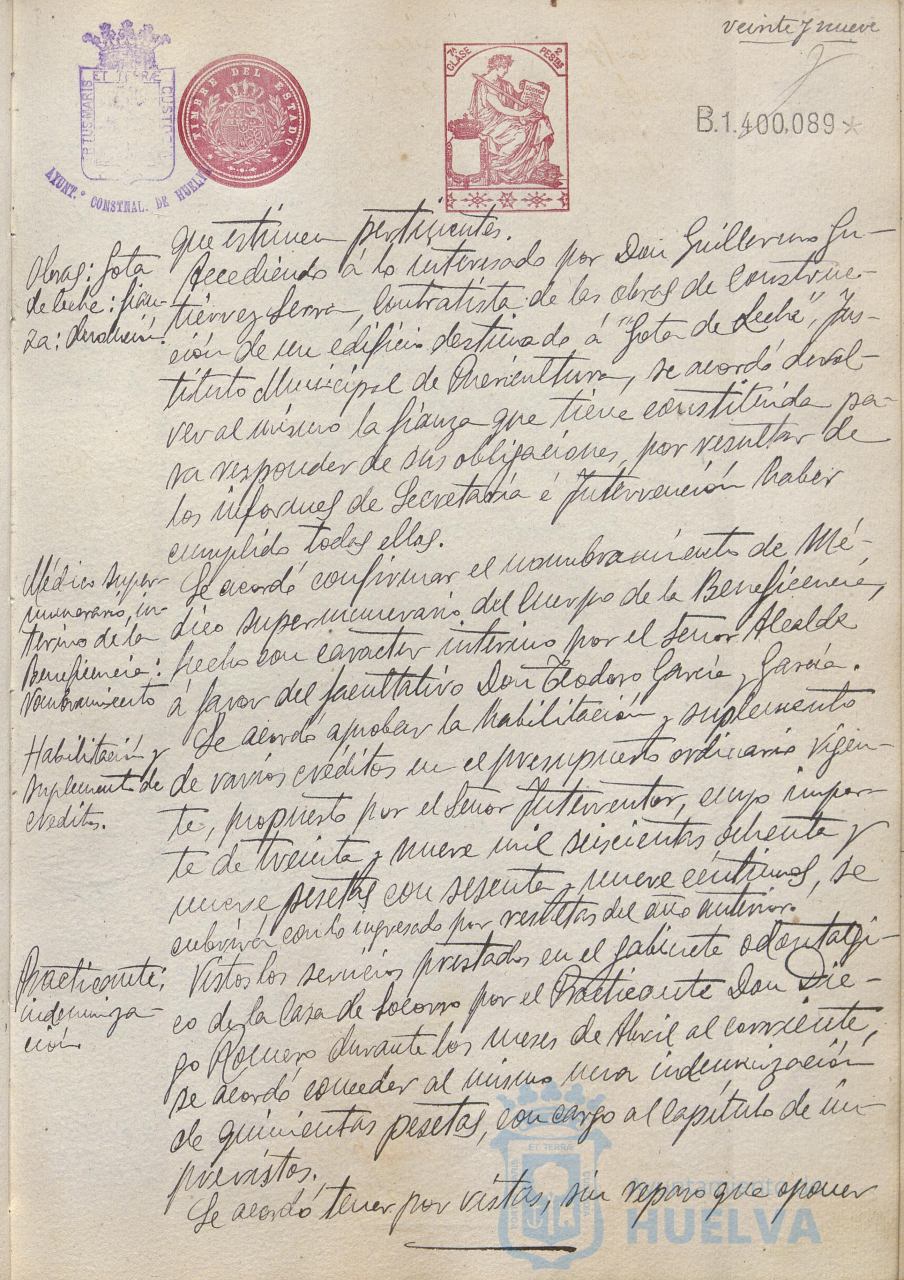 veinte y nueve
ET TERRÆ
PORTUS MARIS
CUSTODIA
AYUNT.º CONSTNAL. DE HUELVA
TIMBRE DEL ESTADO
7ª CLASE
2 PESETAS
B.1.400,089*
que estimen pertinentes.
Obras: Gota
de leche: fian-
za: devolución.
Accediendo á lo interesado por Don Guillermo Gu-
tiérrez Serra, Contratista de las obras de construc-
ción de un edificio destinado á "Gota de Leche", Ins-
tituto Municipal de Puericultura, se acordó devol-
ver al mismo la fianza que tiene constituida pa-
ra responder de sus obligaciones, por resultar de
los informes de Secretaría é Intervención haber
cumplido todas ellas.
Médico super-
numerario, in-
terino de la
Beneficencia:
Nombramiento
Se acordó confirmar el nombramiento de Mé-
dico supernumerario del Cuerpo de la Beneficencia,
hecho con caracter interino por el Señor Alcalde
á favor del facultativo Don Teodoro García y García.
Habilitación y
suplemento de
créditos.
Se acordó aprobar la habilitación y suplemento
de varios créditos en el presupuesto ordinario vigen-
te, propuesto por el Señor Interventor, cuyo impor-
te de treinta y nueve mil seiscientas ochenta y
nueve pesetas con sesenta y nueve céntimos, se
cubrirá con lo ingresado por resultas del año anterior.
Practicante:
indemniza-
ción.
Vistos los servicios prestados en el gabinete odontalgi-
co de la Casa de Socorro por el Practicante Don Die-
go Romero durante los meses de Abril al corriente,
se acordó conceder al mismo una indemnización
de quinientas pesetas, con cargo al capítulo de im-
previstos.
Se acordó tener por vistas, sin reparo que oponer
HUELVA